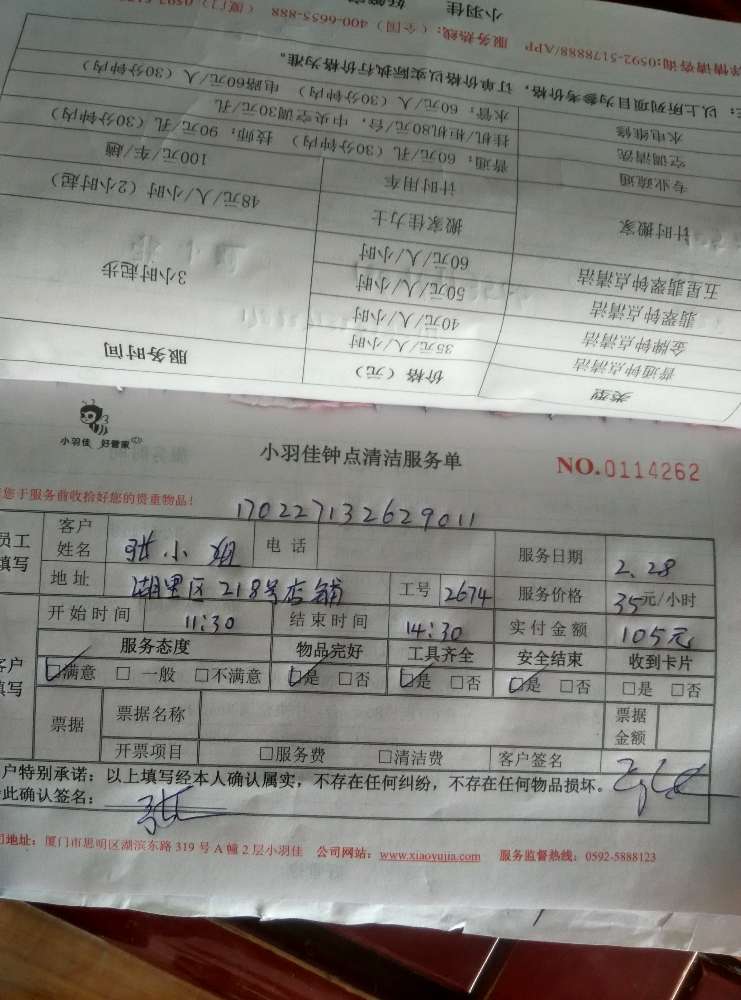 类型 价格（元） 服务时间
普通钟点清洁 35元/人/小时
金牌钟点清洁 40元/人/小时
翡翠钟点清洁 50元/人/小时 3小时起步
五星翡翠钟点清洁 60元/人/小时
计时搬家 搬家佳力士 48元/人/小时（2小时起）
计时用车 100元/车/趟
专业疏通 普通：60元/孔（30分钟内） 技师：90元/孔（30分钟内）
空调清洗 挂机/柜机80元/台，中央空调30元/孔
水电维修 水管：60元/人（30分钟内） 电路60元/人（30分钟内）
：以上所列项目为参考价格，订单价格以实际执行价格为准。
详情请咨询:0592-5178888/APP 服务热线：（全国）400-6655-888 （厦门）0592-517
小羽佳
小羽佳 好管家
小羽佳钟点清洁服务单 NO.0114262
您于服务前收拾好您的贵重物品！
170227132629011
员工填写 客户姓名 张小姐 电话 服务日期 2.28
地址 湖里区218号店铺 工号 2674 服务价格 35元/小时
开始时间 11:30 结束时间 14:30 实付金额 105元
客户填写 服务态度 物品完好 工具齐全 安全结束 收到卡片
☑满意 □一般 □不满意 ☑是 □否 ☑是 □否 ☑是 □否 □是 □否
票据 票据名称 票据金额
开票项目 □服务费 □清洁费 客户签名
户特别承诺：以上填写经本人确认属实，不存在任何纠纷，不存在任何物品损坏。
此确认签名： 张
司地址：厦门市思明区湖滨东路319号A幢2层小羽佳 公司网站：www.xiaoyujia.com 服务监督热线：0592-5888123